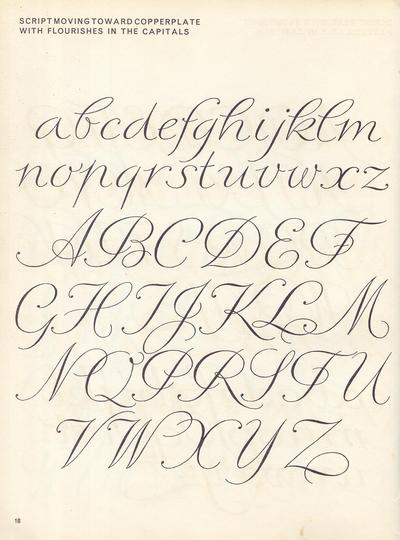 SCRIPT MOVING TOWARD COPPERPLATE
WITH FLOURISHES IN THE CAPITALS
abcdefghijklm
nopqrstuvwxz
ABCDEF
GHIJKLM
NQPRSTU
VWXYZ
18